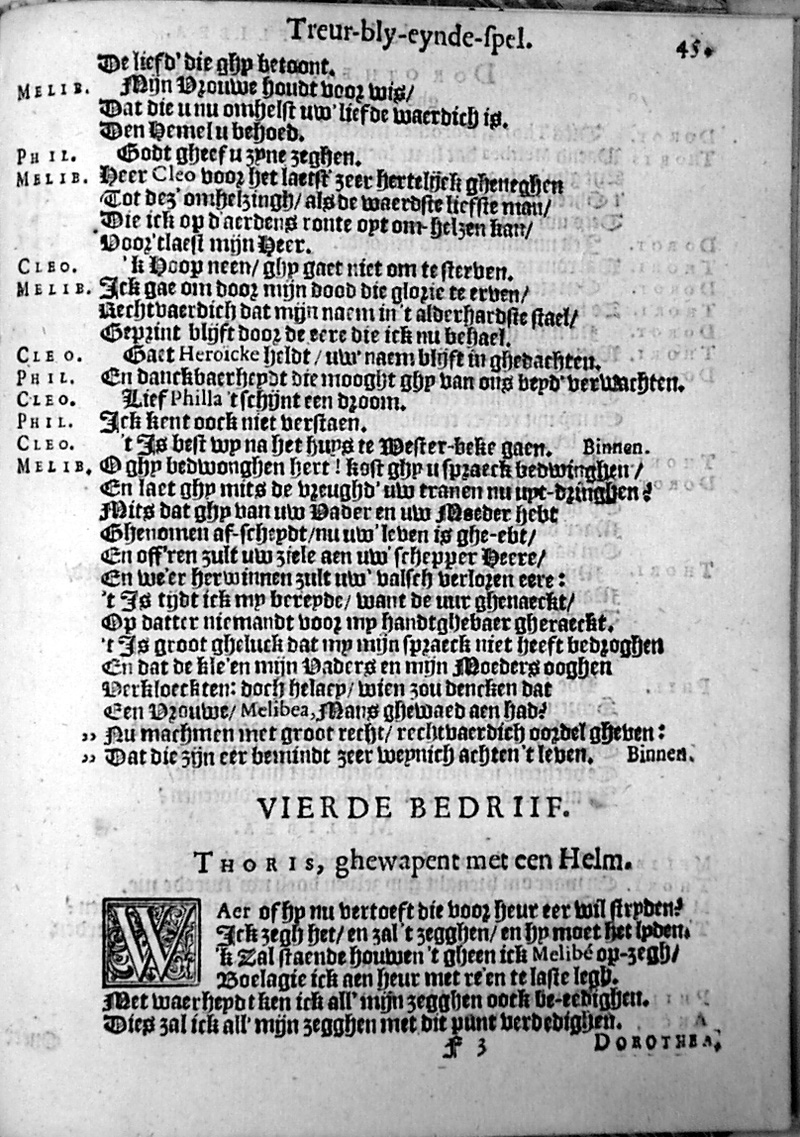 Treur-bly-eynde-spel. 45.
De liefd' die ghy betoont.
MELIB. Mijn Vrouwe houdt voor wis/
Dat die u nu omhelst uw' liefde waerdich is.
Den Hemel u behoed.
PHIL. Godt gheef u zyne zeghen.
MELIB. Heer Cleo voor het laetst' zeer hertelijck gheneghen
Tot dez' omhelzingh/ als de waerdste liefste man/
Die ick op d'aerdens ronte opt om-helzen kan/
Voor'tlaest mijn Heer.
CLEO. 'k Hoop neen/ ghy gaet niet om te sterven.
MELIB. Ick gae om door mijn dood die glorie te erven/
Rechtvaerdich dat mijn naem in 't alderhardste stael/
Geprint blijft door de eere die ick nu behael.
CLEO. Gaet Heroicke heldt/ uw' naem blijft in ghedachten.
PHIL. En danckbaerheydt die mooght ghy van ons beyd' verwachten.
CLEO. Lief Philla 't schijnt een droom.
PHIL. Ick kent oock niet verstaen.
CLEO. 't Is best wy na het huys te Wester-beke gaen. Binnen.
MELIB. O ghy bedwonghen hert! kost ghy u spraeck bedwinghen/
En laet ghy mits de vreughd' uw tranen nu uyt-dringhen?
Mits dat ghy van uw Vader en uw Moeder hebt
Ghenomen af-scheydt/ nu uw' leven is ghe-ebt/
En off'ren zult uw ziele aen uw' schepper Heere/
En we'er herwinnen zult uw' valsch verloren eere:
't Is tydt ick my bereyde/ want de uur ghenaeckt/
Op datter niemandt voor my handtghebaer gheraeckt.
't Is groot gheluck dat my mijn spraeck niet heeft bedroghen
En dat de kle'en mijn Vaders en mijn Moeders ooghen
Verkloeckten: doch helaey/ wien zou dencken dat
Een Vrouwe/ Melibea, Mans ghewaed aen had?
,, Nu machmen met groot recht/ rechtvaerdich oordel gheven:
,, Dat die zijn eer bemindt zeer weynich achten 't leven. Binnen.
VIERDE BEDRIIF.
THORIS, ghewapent met een Helm.
WAer of hy nu vertoeft die voor heur eer wil stryden?
Ick zegh het/ en zal 't zegghen/ en hy moet het lyden.
'k Zal staende houwen 't gheen ick Melibé op-zegh/
Boelagie ick aen heur met re'en te laste legh.
Met waerheydt ken ick all' mijn zegghen oock be-eedighen.
Dies zal ick all' mijn zegghen met dit punt verdedighen.
F 3 DOROTHEA,